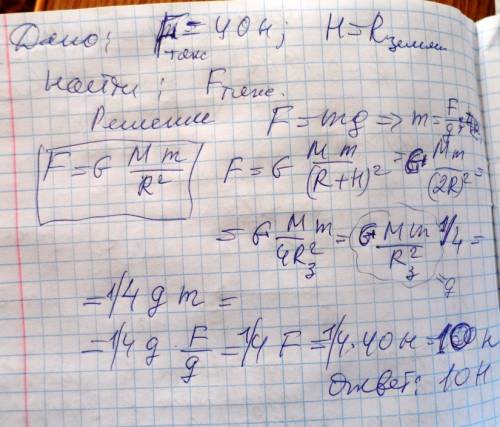 Дано: F тяж = 40 Н; H = R земли
Найти: F тяж.
Решение F = mg => m = F/g
F = G Mm/R² F = G Mm/(R+H)² = G Mm/(2R)² =
= G Mm/4R₃² = G Mm/R₃² 1/4 =
= g
= 1/4 g m =
= 1/4 g · F/g = 1/4 F = 1/4 · 40 Н = 10 Н
Ответ: 10 Н